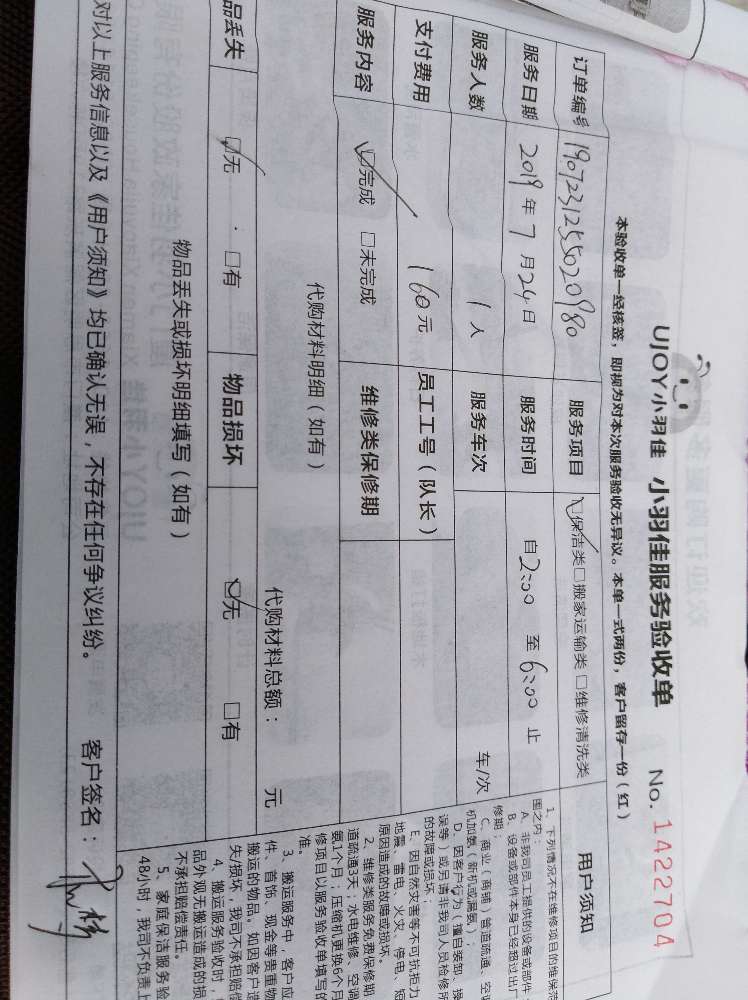 UJOY小羽佳 小羽佳服务验收单 No. 1422704
本验收单一经核签，即视为对本次服务验收无异议。本单一式两份，客户留存一份（红）
订单编号 1907231255020980 服务项目 ☑保洁类□搬家运输类 □维修清洗类
服务日期 2019年7月24日 服务时间 自2:00 至 6:00 止
服务人数 1人 服务车次 车/次
支付费用 160元 员工工号（队长）
服务内容 ☑完成 □未完成 维修类保修期
代购材料明细（如有）
代购材料总额： 元
品丢失 ☑无 □有 物品损坏 ☑无 □有
物品丢失或损坏明细填写（如有）
对以上服务信息以及《用户须知》均已确认无误，不存在任何争议纠纷。 客户签名：
用户须知
1、下列情况不在维修项目的维保范
围之内：
A、非我司员工提供的设备或部件
B、设备或部件本身已经超过出厂
修期；
C、商业（商铺）管道疏通、空
机加氨（新机或漏氨）；
D、因客户行为（擅自装卸、操
误等）或另请非我司人员检修所
的故障或损坏；
E、因自然灾害等不可抗拒力
地震、雷电、火灾、停电、短
原因造成的故障或损坏。
2、维修类服务免费保修期
道疏通3天，水电维修、空调
氨1个月，压缩机更换6个月
修项目以服务验收单填写的
准。
3、搬运服务中，客户应
件、首饰、现金等贵重物
搬运的物品。如因客户造
失/损坏，我司不承担赔偿
4、搬运服务验收时，
品外观无搬运造成的损
不承担赔偿责任。
5、家庭保洁服务验
48小时，我司不负责上